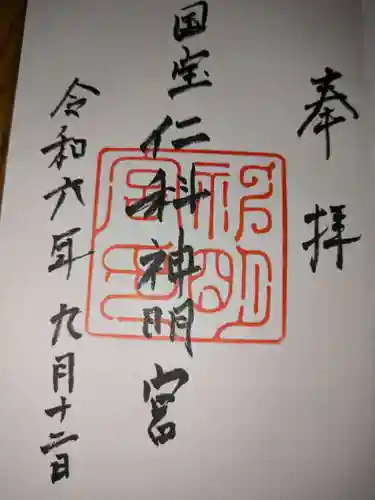 奉拝
国宝 仁科神明宮
令和六年 九月十二日